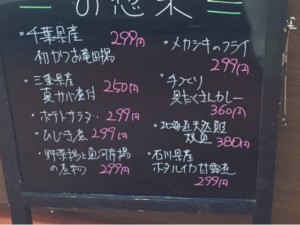 お惣菜
・千葉県産 299円
初かつお竜田揚
・三重県産
真カジキ煮付 250円
・ポテトサラダ… 299円
・ひじき煮 299円
・野菜揚と魚河岸揚
の煮物 299円
・メカジキのフライ
299円
・手づくり
具だくさんカレー
360円
・北海道天然鮭
380円
・石川県産
ホタルイカ甘露煮
299円